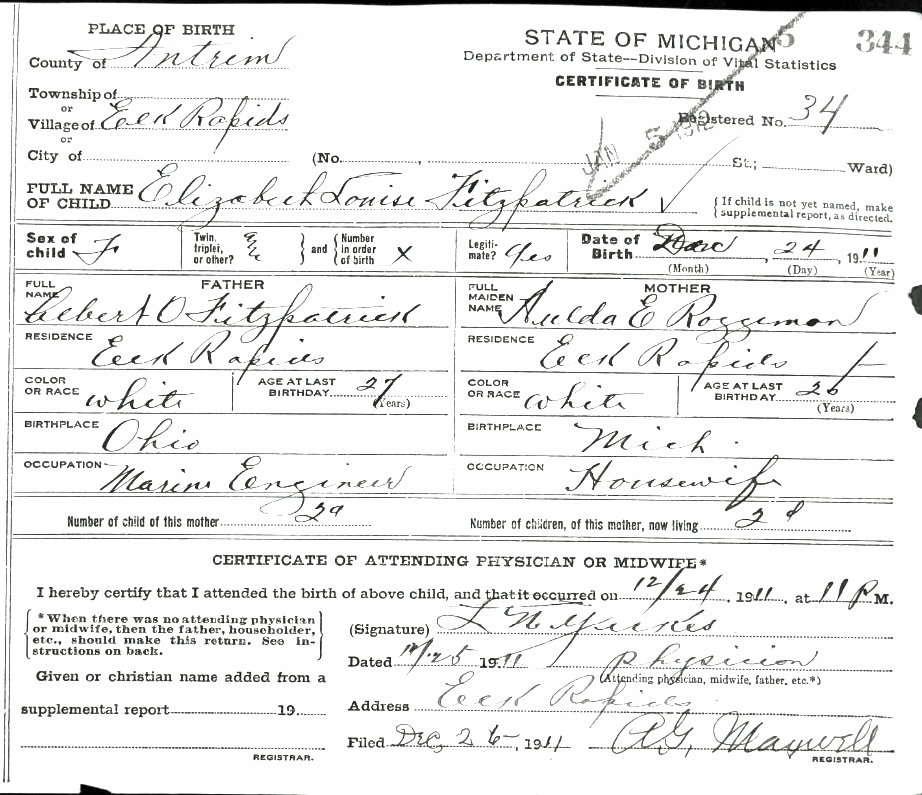 PLACE OF BIRTH
County of Antrim
Township of
or
Village of Elk Rapids
or
City of
STATE OF MICHIGAN
344
Department of State--Division of Vital Statistics
CERTIFICATE OF BIRTH
Registered No. 34
JAN 5 1912
(No. , St.; Ward)
FULL NAME OF CHILD Elizabeth Louise Fitzpatrick ✓
{If child is not yet named, make
supplemental report, as directed.
Sex of child F
Twin, triplet, or other? } and { Number in order of birth X
Legiti-mate? Yes
Date of Birth Dec , 24 , 1911
(Month) (Day) (Year)
FATHER
FULL NAME Albert O Fitzpatrick
RESIDENCE Elk Rapids
COLOR OR RACE white
AGE AT LAST BIRTHDAY 27 (Years)
BIRTHPLACE Ohio
OCCUPATION Marine Engineer
MOTHER
FULL MAIDEN NAME Hulda E Roggeman
RESIDENCE Elk Rapids
COLOR OR RACE white
AGE AT LAST BIRTHDAY 26 (Years)
BIRTHPLACE Mich.
OCCUPATION Housewife
Number of child of this mother 2d
Number of children, of this mother, now living 2d
CERTIFICATE OF ATTENDING PHYSICIAN OR MIDWIFE*
I hereby certify that I attended the birth of above child, and that it occurred on 12/24, 1911, at 11 P M.
*When there was no attending physician
or midwife, then the father, householder,
etc., should make this return. See in-
structions on back.
(Signature)
Dated 12/25 1911 physician
(Attending physician, midwife, father, etc.*)
Given or christian name added from a
supplemental report 19
Address Elk Rapids
Filed Dec, 26, 1911 A.G. Maxwell
REGISTRAR.
REGISTRAR.